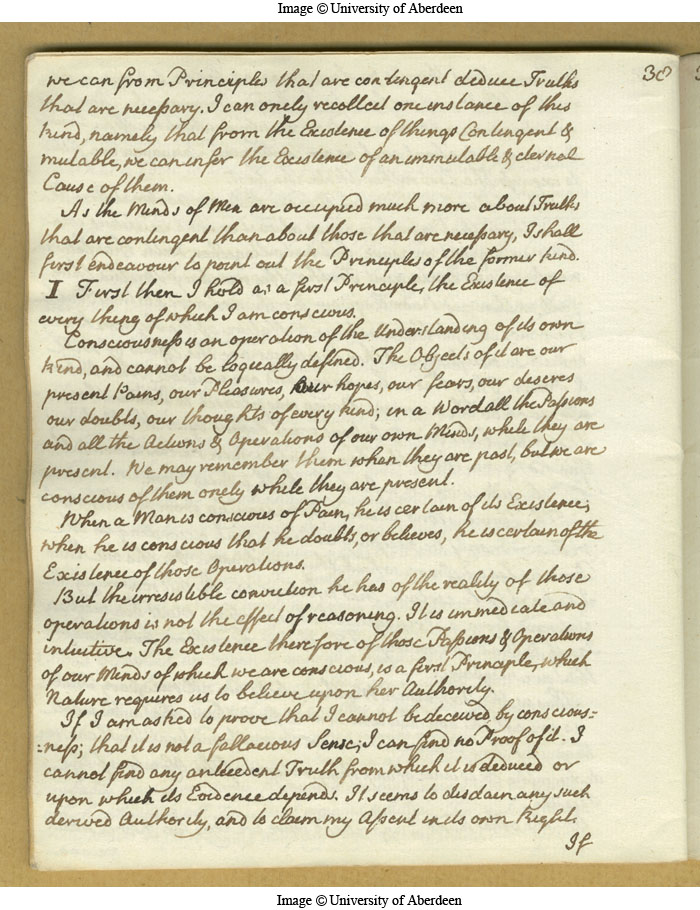 Image © University of Aberdeen
30
we can from Principles that are contingent deduce Truths
that are necessary. I can onely recollect one instance of this
kind, namely that from the Existence of things Contingent &
mutable, we can infer the Existence of an immutable & eternal
Cause of them.
As the Minds of Men are occupied much more about Truths
that are contingent than about those that are necessary, I shall
first endeavour to point out the Principles of the former kind.
I First then I hold as a first Principle, the Existence of
every thing of which I am conscious.
Consciousness is an operation of the Understanding of its own
kind, and cannot be logically defined. The Objects of it are our
present Pains, our Pleasures, our hopes, our fears, our desires
our doubts, our thoughts of every kind; in a Word all the Passions
and all the Actions & Operations of our own Minds, while they are
present. We may remember them when they are past, but we are
conscious of them onely while they are present.
When a Man is conscious of Pain, he is certain of its Existence;
when he is conscious that he doubts, or believes, he is certain of the
Existence of those Operations.
But the irresistible conviction he has of the reality of those
operations is not the effect of reasoning. It is immediate and
intuitive. The Existence therefore of those Passions & Operations
of our Minds of which we are conscious, is a first Principle, which
Nature requires us to believe upon her Authority.
If I am asked to prove that I cannot be deceived by conscious=
=ness; that it is not a fallacious Sense; I can find no Proof of it. I
cannot find any antecedent Truth from which it is deduced or
upon which its Evidence depends. It seems to disdain any such
derived Authority, and to claim my Assent in its own Right.
If
Image © University of Aberdeen